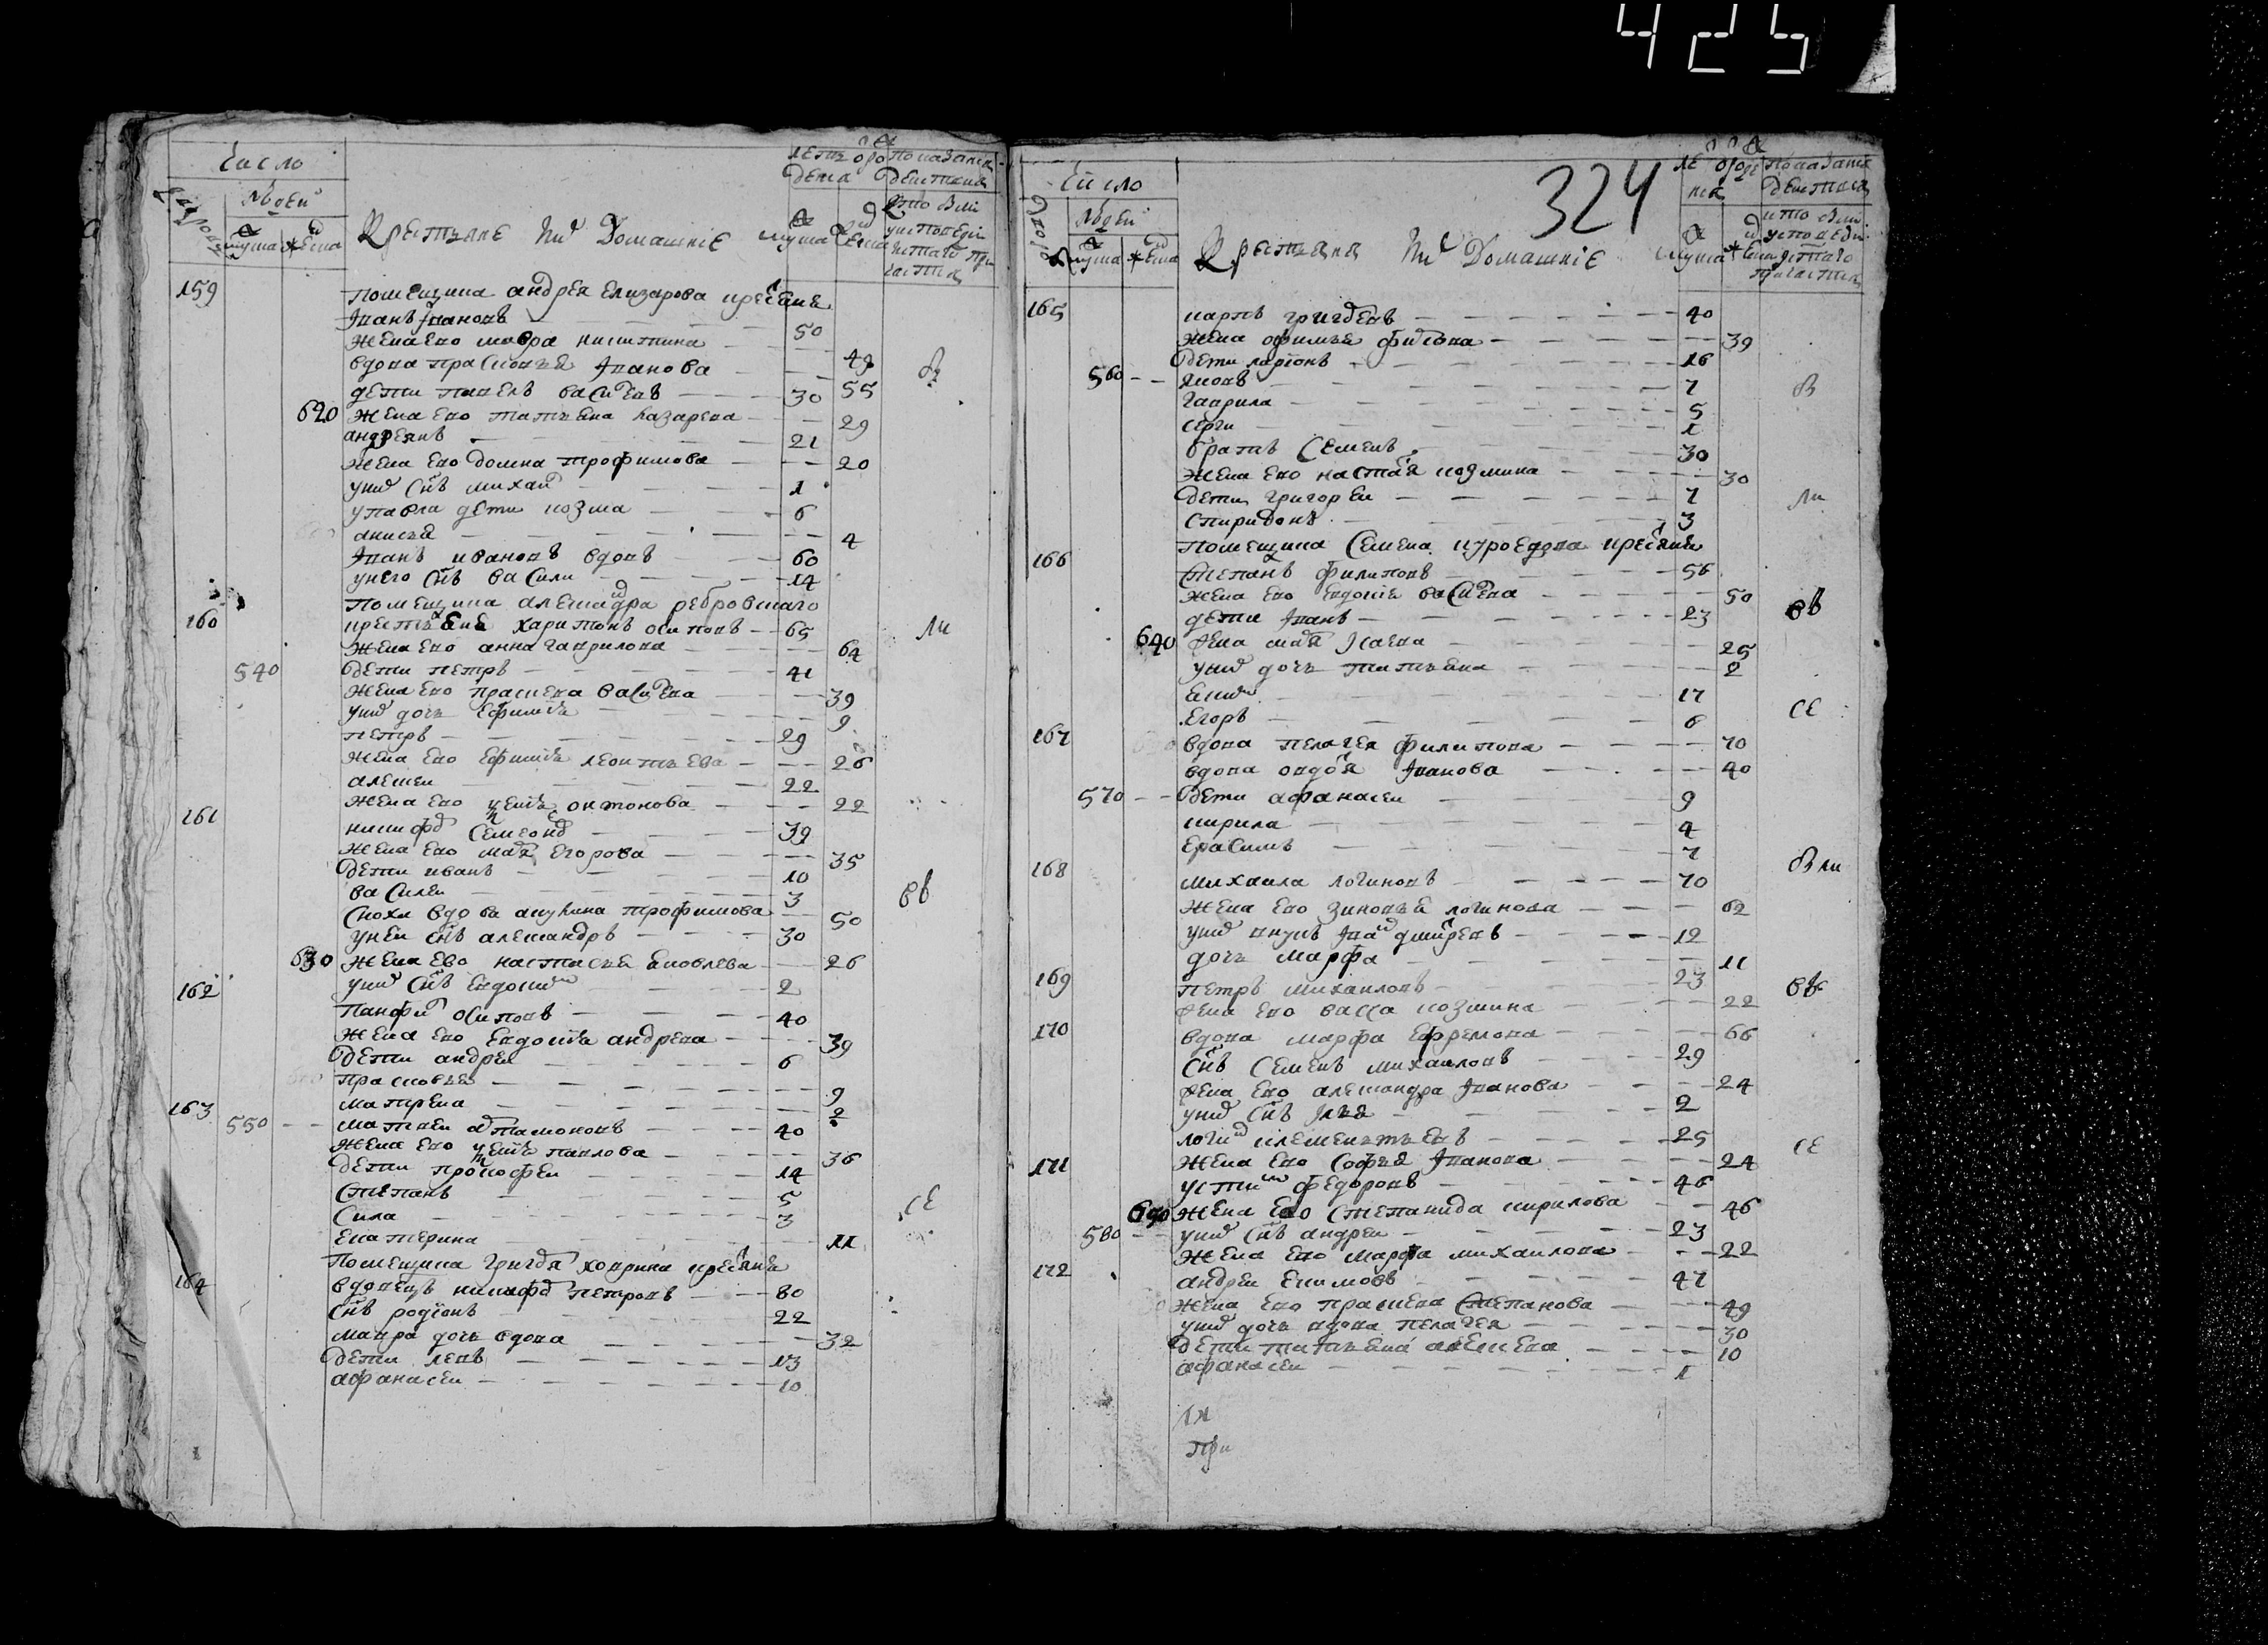 425
Число
людей
мужеска
женска
Крестьяне и домашние их
159
помещика андрея елизарова крестьяне
Іванъ Івановъ 50
жена ево мавра никитина 49
вдова прасковья Іванова 55
дети павелъ василевъ 30
620 жена ево татьяна назарева 29
андреянъ 21
жена ево домна трофимова 20
у них снъ михаил 1
у павла дети козма 6
анисья 4
Іванъ ивановъ вдовъ 60
у него снъ васили 14
помещика александра ребровскаго
160 крестьяне харитонъ осиповъ 65
жена ево анна гаврилова 64
540 дети петръ 41
жена ево прасковья василева 39
у них дочь ефимия 9
петръ 29
жена ево ефимия леонтьева 26
алексеи 22
жена ево оксиния антонова 22
161
никифор семенов 39
жена ево мария егорова 35
дети иванъ 10
василеи 3
сноха вдова акулина трофимова 50
у неи снъ александръ 30
630 жена ево настасья яковлева 26
у них снъ евдоким 2
162
панфил осиповъ 40
жена ево евдокия андреева 39
дети андреи 6
прасковья 9
матрена 2
163
550 матвеи артамоновъ 40
жена ево ксения павлова 36
дети прокофеи 14
степанъ 5
сила 3
екатерина 11
помещика григоря ховрина крестьяне
164 вдовецъ никифор петровъ 80
снъ родионъ 22
мавра дочь вдова 32
дети левъ 13
афанасеи 10
324
Число
людей
мужеска
женска
Крестьяне и домашние их
165
карпъ григоревъ 40
жена офимья филипова 39
дети ларионъ 16
560 яковъ 7
гаврила 5
серги 1
братъ семенъ 30
жена ево настася козмина 30
дети григореи 7
спиридонъ 3
помещика семена куроедова крестьяне
166
степанъ филиповъ 56
жена ево евдокия василева 50
дети Іванъ 23
640 жена мария Ісаева 25
у них дочь татьяна 2
еким 17
егоръ 6
167
вдова пелагея филипова 70
вдова авдотя Іванова 40
570 дети афанасеи 9
кирила 4
ерасимъ 7
168
михаила логиновъ 70
жена ево зиновья логинова 62
у них внукъ Іван дмитревъ 12
дочь марфа 11
169
петръ михаиловъ 23
жена ево васса козмина 22
170
вдова марфа ефремова 66
снъ семенъ михаиловъ 29
жена ево александра Іванова 24
у них снъ Ілья 2
логин клементьевъ 25
жена ево софья Іванова 24
171
устин федоровъ 46
650 жена ево степанида кирилова 46
580 у них снъ андреи 23
жена ево марфа михаилова 22
172
андреи екимовъ 47
жена ево прасковья степанова 49
у них дочь вдова пелагея 30
дети татьяна алексева 10
афанасеи 1
при